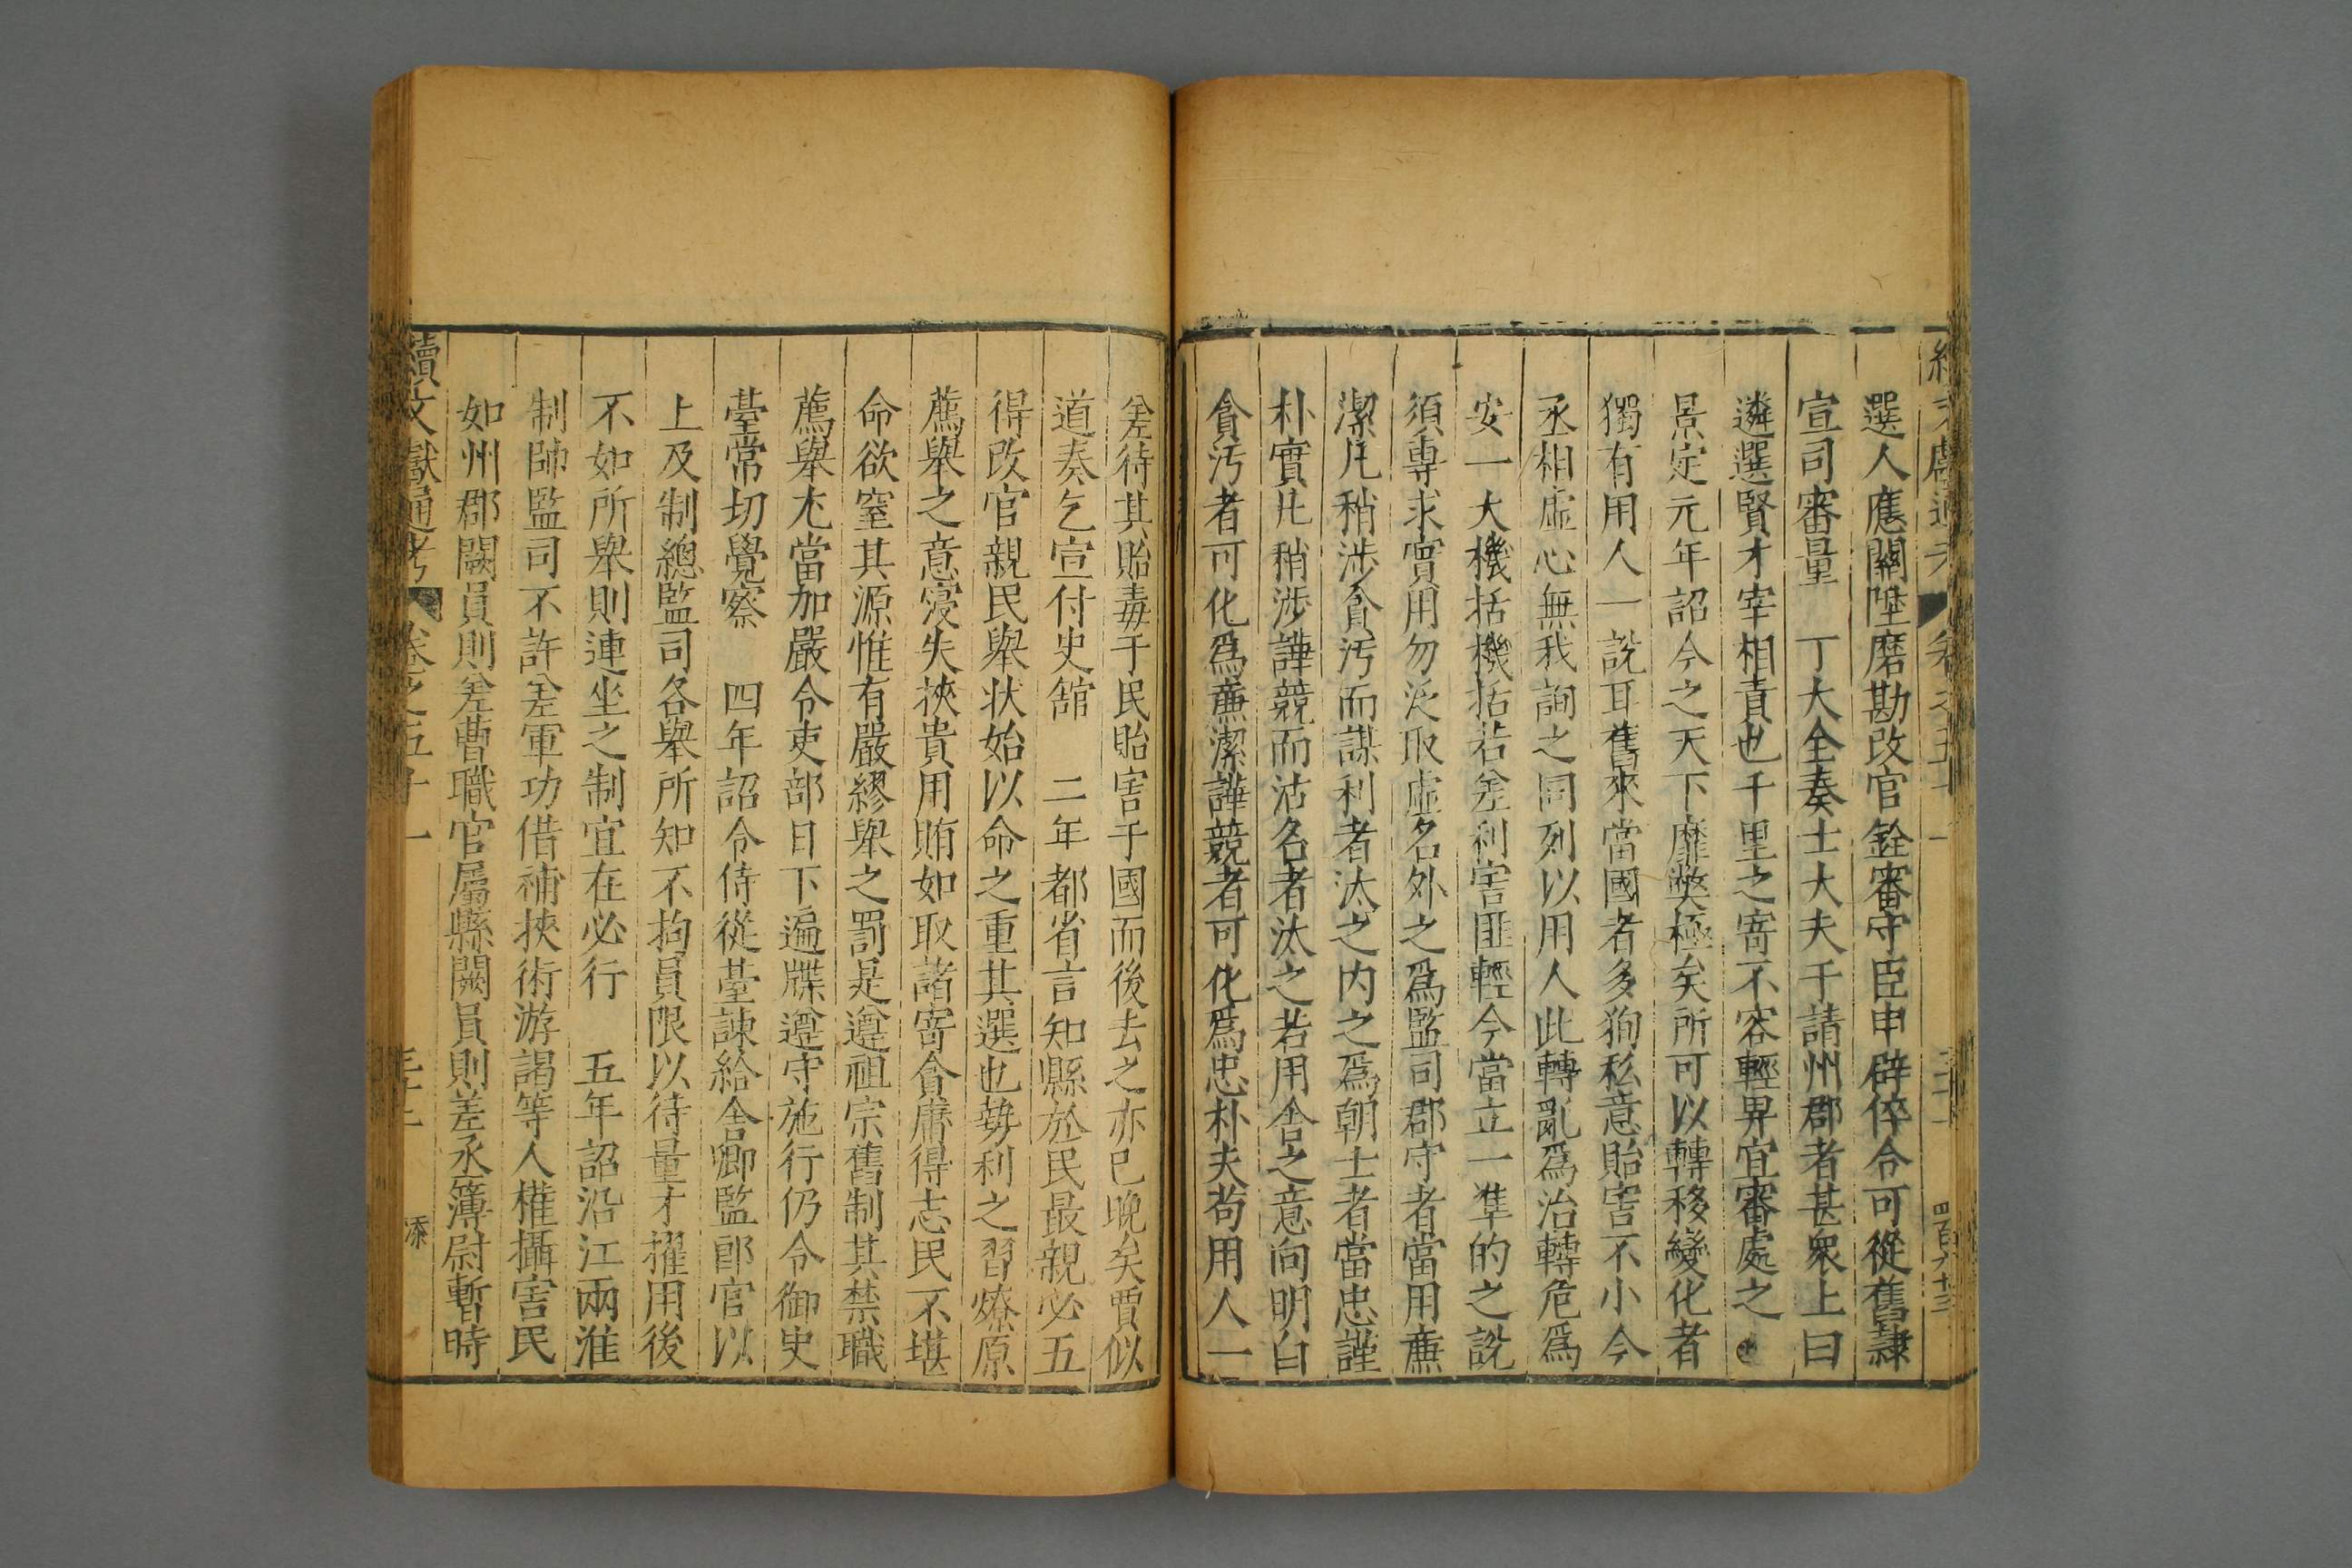 選人應關陞磨勘改官銓審守臣申辟倅合可從舊隷
宣司審量　丁大全奏士大夫干請州郡者甚衆上曰
遴選賢才宰相責也千里之寄不容輕畀宜審處之
景定元年詔今之天下靡獘極矣所可以轉移變化者
獨有用人一說耳舊來當國者多狥私意貽害不小今
丞相虛心無我詢之同列以用人此轉亂爲治轉危爲
安一大機括機括若差利害匪輕今當立一準的之說
須專求實用勿泛取虛名外之爲監司郡守者當用廉
潔凡稍涉貪汚而謀利者汰之内之爲朝士者當忠謹
朴實凡稍涉譁競而沽名者汰之若用舎之意向明白
貪汚者可化爲廉潔譁競者可化爲忠朴夫苟用人一
差待其貽毒于民貽害于國而後去之亦已晚矣賈似
道奏乞宣付史舘　二年都省言知縣於民最親必五
得改官親民舉状始以命之重其選也勢利之習燎原
薦舉之意寖失挾貴用賄如取諸寄貪庸得志民不堪
命欲窒其源惟有嚴繆舉之罰是遵祖宗舊制其禁職
薦舉尤當加嚴令吏部日下遍牒遵守施行仍令御史
臺常切覺察　四年詔令侍從臺諫給舎卿監郎官以
上及制總監司各舉所知不拘員限以待量才擢用後
不如所舉則連坐之制宜在必行　五年詔沿江兩淮
制帥監司不許差軍功借補挾術游謁等人權攝害民
如州郡闕員則差曹職官屬縣闕員則差丞簿尉暫時
續文獻通考　卷之五十一　三十二　添